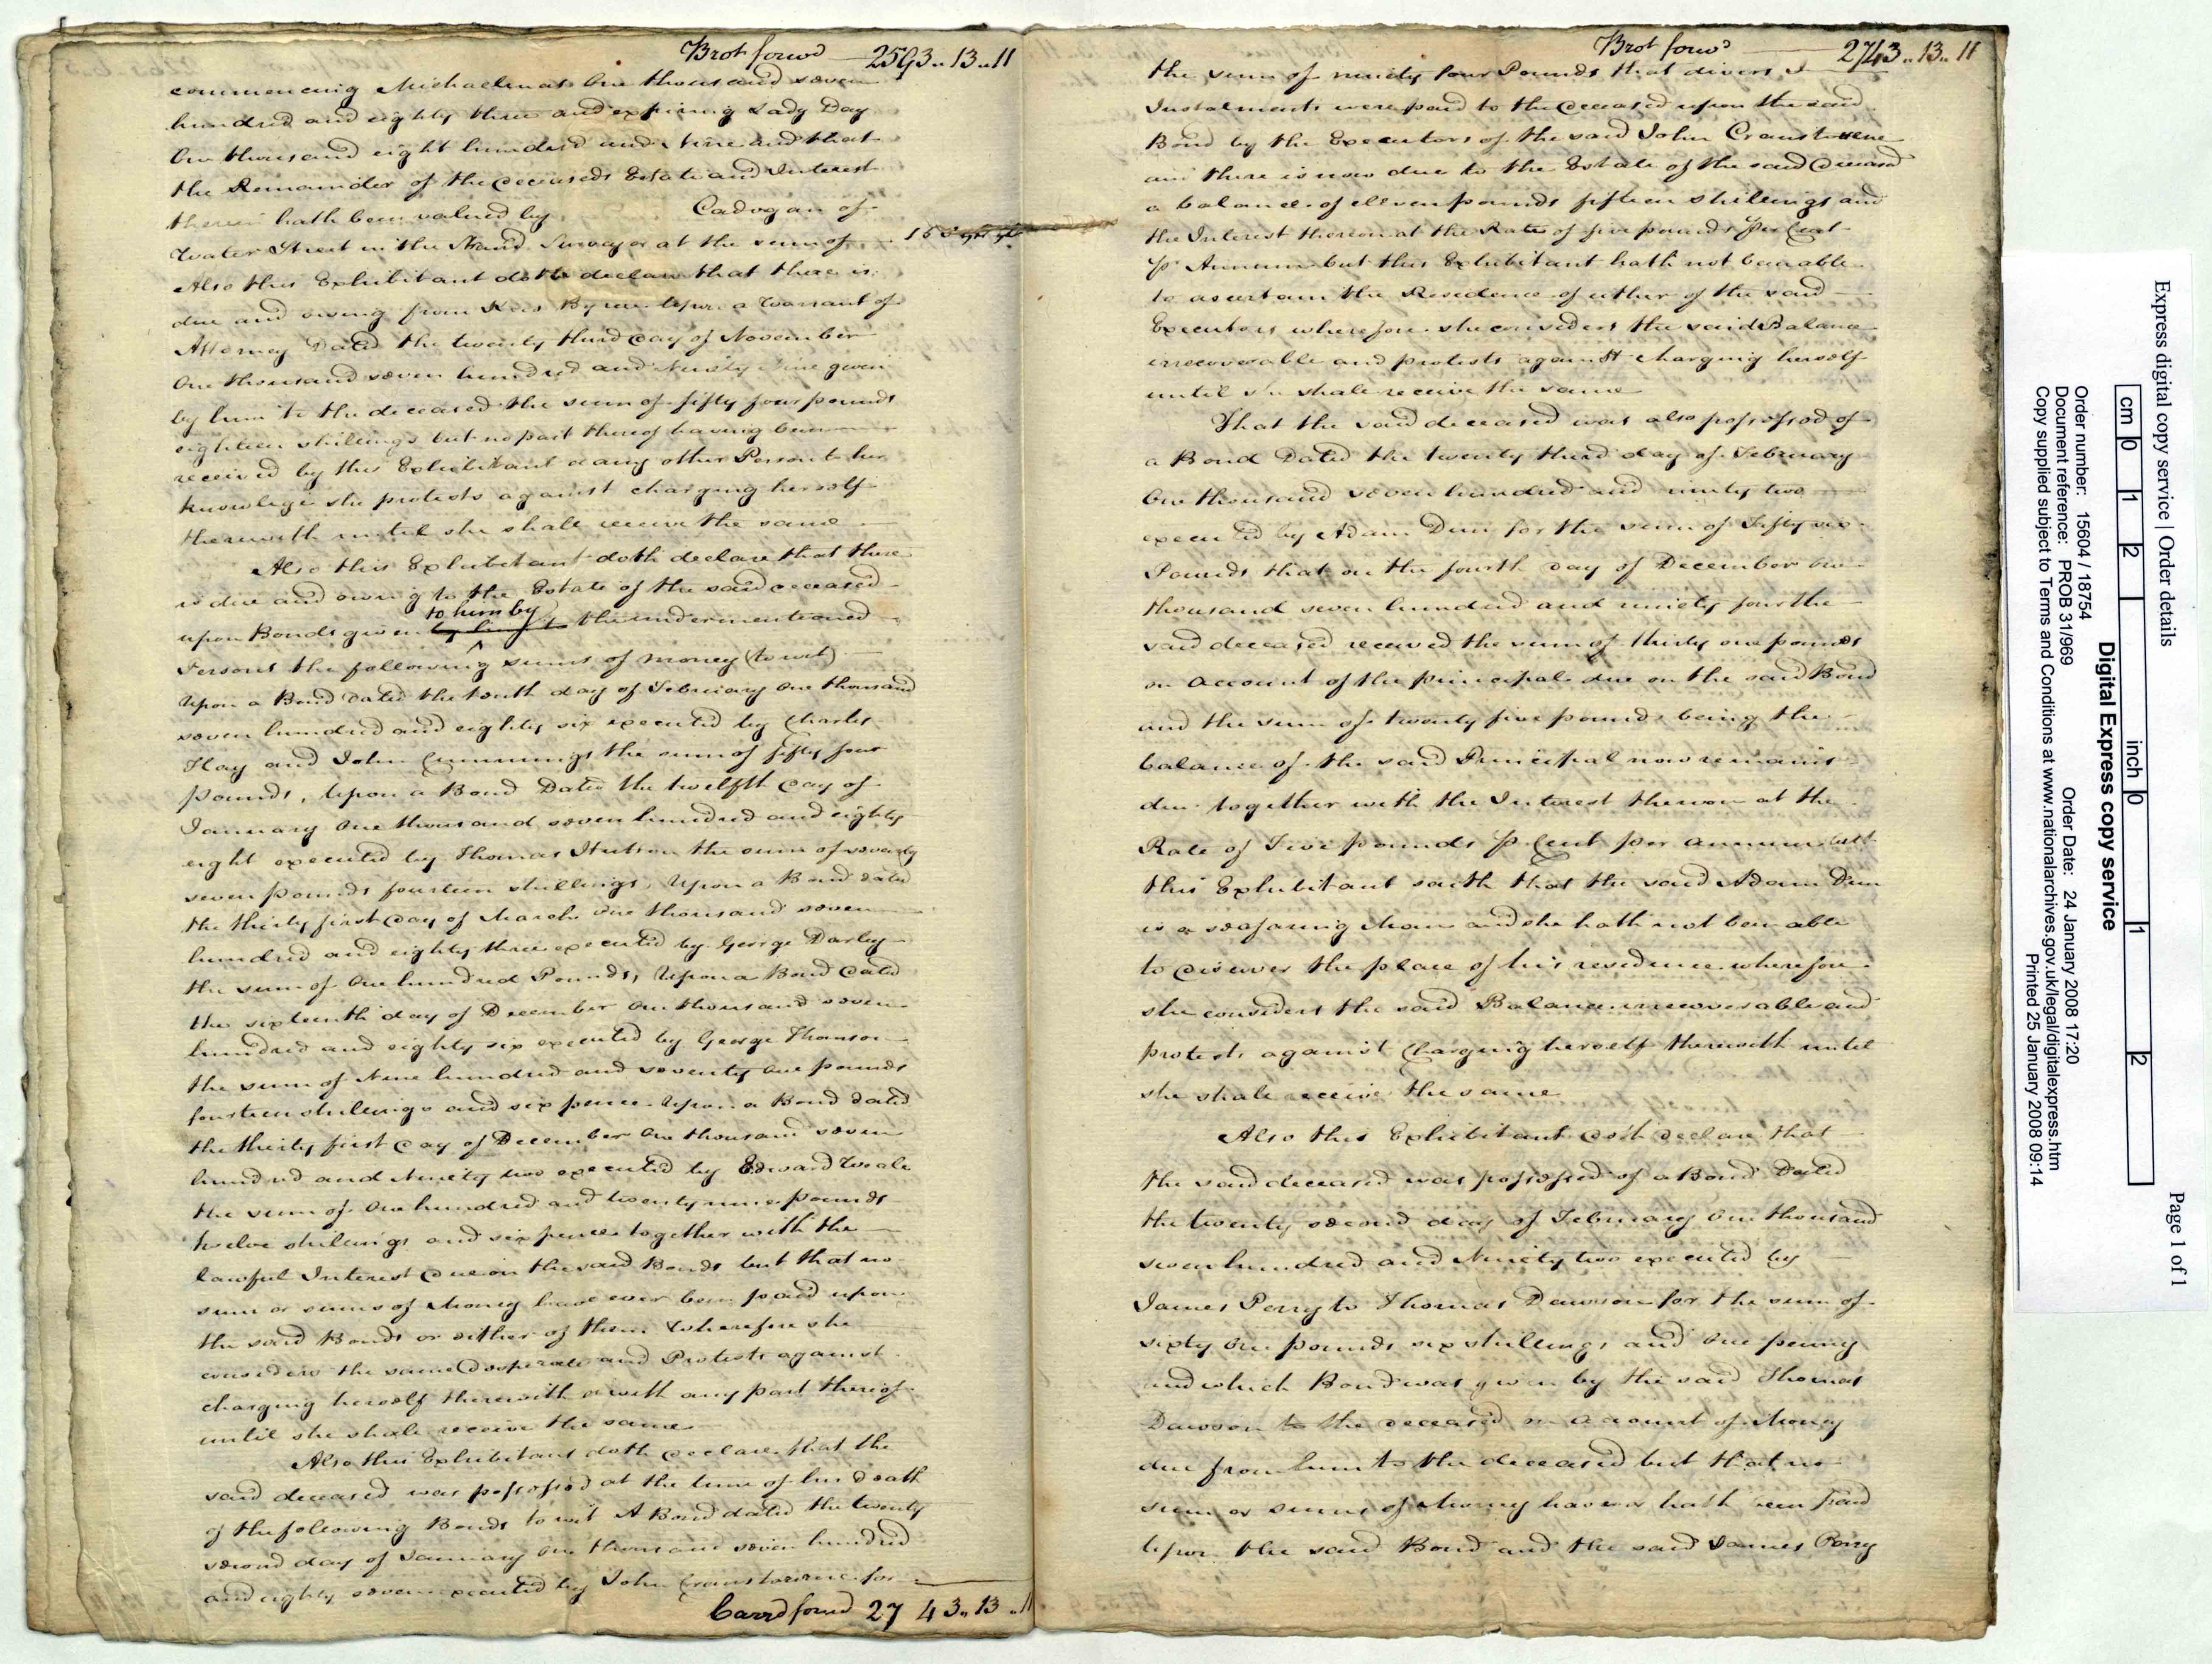 Brot forwd 2593..13..11
commencing Michaelmas One thousand seven
hundred and eighty three and expiring Lady Day
One thousand eight hundred and Nine and that
the Remainder of the deceaseds Estate and Interest
therein hath been valued by Cadogan of
Water Street in the Strand Surveyor at the sum of 150
Also this Exhibitant doth declare that there is
due and owing from Byrne upon a Warrant of
Attorney Dated the twenty third day of November
One thousand seven hundred and Ninety Nine given
by him to the deceased the sum of fifty four pounds
eighteen shillings but no part thereof having been
received by this Exhibitant or any other Person to her
knowlege she protests against charging herself
therewith until she shall receive the same
Also this Exhibitant doth declare that there
is due and owing to the Estate of the said deceased
to him by
upon Bonds given the undermentioned
Persons the following sums of money (to wit)
Upon a Bond dated the tenth day of February One thousand
seven hundred and eighty six executed by Charles
Hay and John Cummings the sum of fifty four
pounds, Upon a Bond Dated the twelfth day of
January One thousand seven hundred and eighty
eight executed by Thomas Hutson the sum of seventy
seven pounds fourteen shillings, Upon a Bond dated
the thirty first day of March One thousand seven
hundred and eighty three executed by George Darley
the sum of One hundred Pounds, Upon a Bond dated
the sixteenth day of December One thousand seven
hundred and eighty six executed by George Thomson
the sum of Nine hundred and seventy one pounds
fourteen shillings and six pence Upon a Bond dated
the thirty first day of December One thousand seven
hundred and Ninety two executed by Edward Weale
the sum of One hundred and twenty nine pounds
twelve shillings and six pence together with the
lawful Interest due on the said Bonds but that no
sum or sums of Money have ever been paid upon
the said Bonds or either of them Wherefore she
considers the same desperate and Protests against
charging herself therewith or with any part thereof
until she shall receive the same
Also this Exhibitant doth declare that the
said deceased was possessed at the time of his death
of the following Bonds to wit A Bond dated the twenty
second day of January One thousand seven hundred
and eighty seven executed by John Cranstowne for
Carrd forwd 2743..13..11
Brot forwd 2743..13..11
the sum of ninety four Pounds that divers
Instalments were paid to the deceased upon the said
Bond by the Executors of the said John Cranstowne
and there is now due to the Estate of the said deceased
a balance of eleven pounds fifteen shillings and
the Interest thereon at the Rate of five pounds Per Cent
Pr Annum but this Exhibitant hath not been able
to ascertain the Residence of either of the said
Executors wherefore she considers the said Balance
irrecoverable and protests against charging herself
until she shall receive the same
That the said deceased was also possessed of
a Bond Dated the twenty third day of February
One thousand seven hundred and ninety two
executed by Adam Dun for the sum of Fifty six
Pounds that on the fourth day of December One
thousand seven hundred and ninety four the
said deceased received the sum of thirty one pounds
on account of the principal due on the said Bond
and the sum of twenty five pounds being the
balance of the said Principal now remains
due together with the Interest thereon at the
Rate of Five pounds p Cent per annum but
this Exhibitant saith that the said Adam Dun
is a seafaring Man and she hath not been able
to discover the place of his residence wherefore
she considers the said Balance irrecoverable and
protests against Charging herself therewith until
she shall receive the same
Also this Exhibitant doth declare that
the said deceased was possessed of a Bond Dated
the twenty second day of February One thousand
seven hundred and Ninety two executed by
James Perry to Thomas Dawson for the sum of
sixty one pounds six shillings and One penny
and which Bond was given by the said Thomas
Dawson to the deceased on account of Money
due from him to the deceased but that no
sum or sums of Money have or hath been paid
upon the said Bond and the said James Perry
Express digital copy service | Order details
Page 1 of 1
cm 0 1 2 inch 0 1 2
Digital Express copy service
Order number: 15604 / 18754 Order Date: 24 January 2008 17:20
Document reference: PROB 31/969
Copy supplied subject to Terms and Conditions at www.nationalarchives.gov.uk/legal/digitalexpress.htm
Printed 25 January 2008 09:14